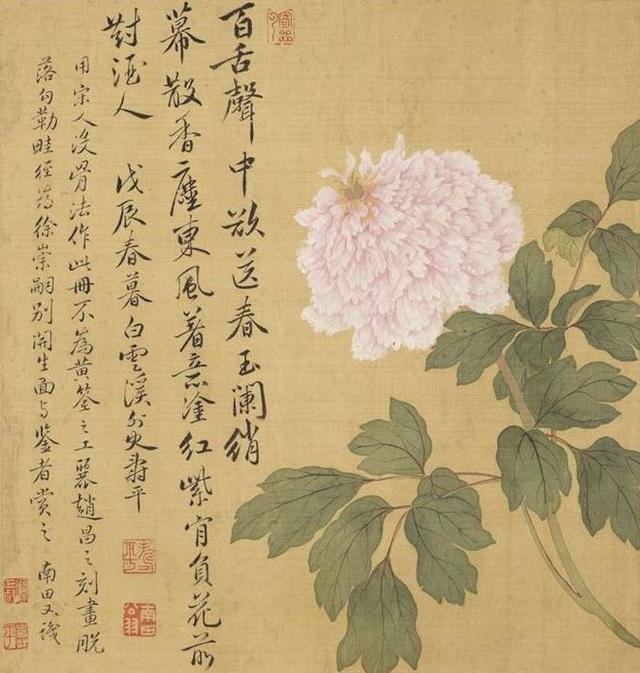 百舌聲中欲送春玉闌綃
幕散香塵東風著意塗紅紫肯負花前
對酒人 戊辰春暮白雲溪外史壽平
用宋人沒骨法作此冊不為黄筌之工麗趙昌之刻畫脫
落勾勒畦徑為徐崇嗣別開生面与鑒者賞之 南田又識